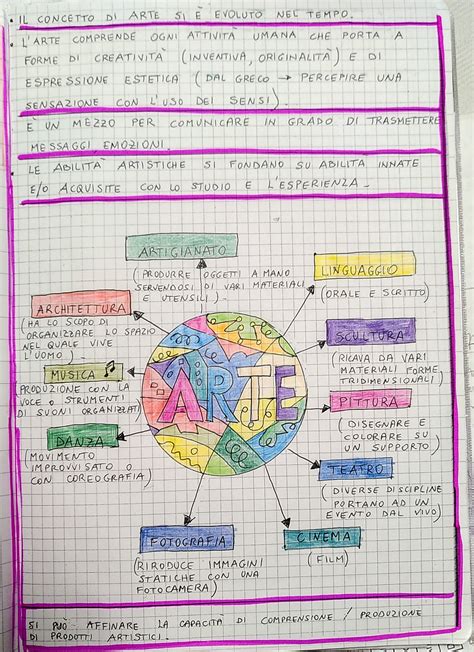 IL CONCETTO DI ARTE SI È EVOLUTO NEL TEMPO.
L'ARTE COMPRENDE OGNI ATTIVITÀ UMANA CHE PORTA A
FORME DI CREATIVITÀ (INVENTIVA, ORIGINALITÀ) E DI
ESPRESSIONE ESTETICA (DAL GRECO → PERCEPIRE UNA
SENSAZIONE CON L'USO DEI SENSI).
È UN MEZZO PER COMUNICARE IN GRADO DI TRASMETTERE
MESSAGGI, EMOZIONI.
LE ABILITÀ ARTISTICHE SI FONDANO SU ABILITÀ INNATE
E/O ACQUISITE CON LO STUDIO E L'ESPERIENZA.
ARTIGIANATO
(PRODURRE OGGETTI A MANO
SERVENDOSI DI VARI MATERIALI
E UTENSILI)
LINGUAGGIO
(ORALE E SCRITTO)
ARCHITETTURA
(HA LO SCOPO DI
ORGANIZZARE LO SPAZIO
NEL QUALE VIVE
L'UOMO)
SCULTURA
(RICAVA DA VARI
MATERIALI FORME
TRIDIMENSIONALI)
MUSICA
(PRODUZIONE CON LA
VOCE O STRUMENTI
DI SUONI ORGANIZZATI)
ARTE
PITTURA
(DISEGNARE E
COLORARE SU
UN SUPPORTO)
DANZA
(MOVIMENTO
IMPROVVISATO O
CON COREOGRAFIA)
TEATRO
(DIVERSE DISCIPLINE
PORTANO AD UN
EVENTO DAL VIVO)
FOTOGRAFIA
(RIRODUCE IMMAGINI
STATICHE CON UNA
FOTOCAMERA)
CINEMA
(FILM)
SI PUÒ AFFINARE LA CAPACITÀ DI COMPRENSIONE / PRODUZIONE
DI PRODOTTI ARTISTICI.